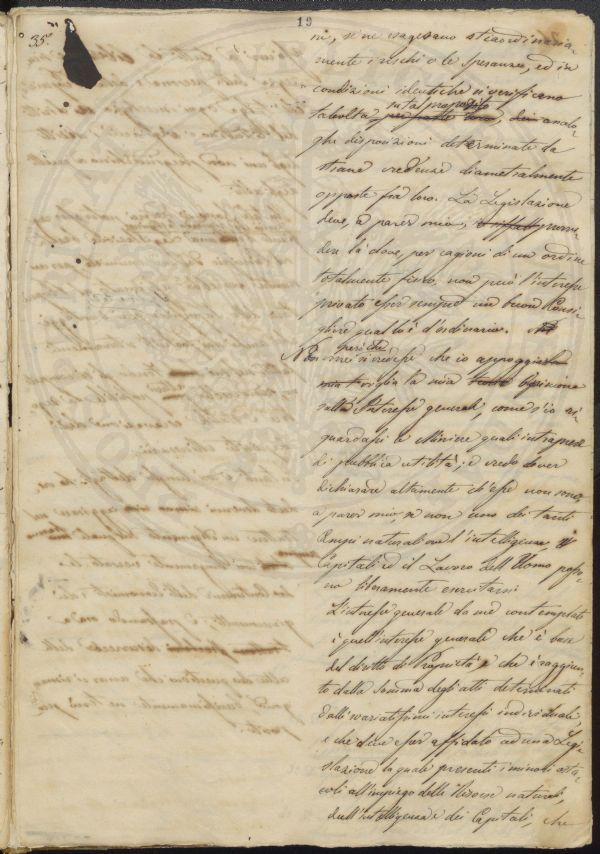 19
35.
ni, se ne esagerano straordinaria-
mente i rischi o le speranze, ed in
condizioni identiche si verificano
talvolta per parte loro dei analo-
ghe disposizioni determinate da
strane credenze diametralmente
opposte fra loro. La Legislazione
deve, a parer mio,
dere là dove, per cagioni di un ordine
totalmente fisico, non può l'interesse
privato esser sempre un buon Consi-
gliere qual lo è d'ordinario.
perchè
Non vorrei si credesse che io appoggiando
voglia la mia opinione
sull'Interesse generale, come s'io ri-
guardassi le Miniere quali intraprese
di pubblica utilità; e credo dover
dichiarare altamente ch'esse non sono,
a parer mio, se non uno dei tanti
Campi naturali ove l'intelligenza i
Capitali ed il Lavoro dell'Uomo pos-
sono liberamente esercitarsi
L'interesse generale da me contemplato
è quell'interesse generale che è base
del diritto di Proprietà e che è raggiun-
to dalla somma degli atti determinati
dalli svariatissimi interessi individuali,
e che deve esser affidato ad una Legi-
slazione la quale presenti i minori osta-
coli all'impiego delle Risorse naturali,
dell'intelligenza e dei Capitali, che